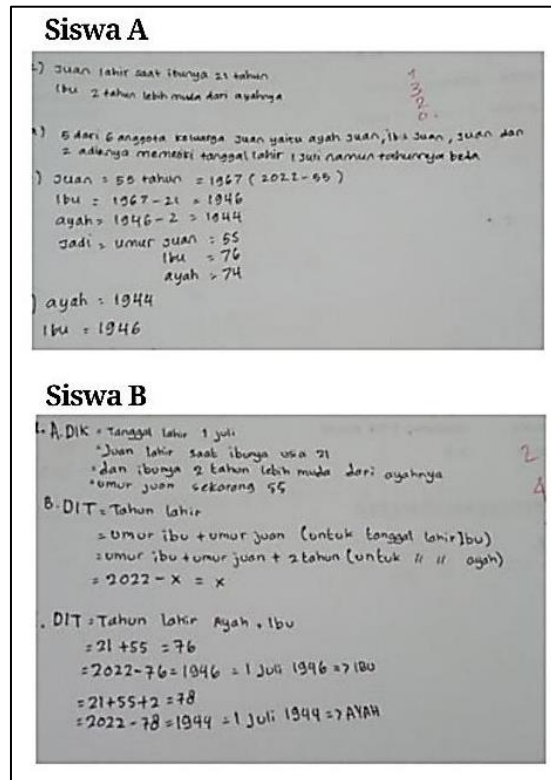 Siswa A
2) Juan lahir saat ibunya 21 tahun
Ibu 2 tahun lebih muda dari ayahnya
1
3
2
0
a) 5 dari 6 anggota keluarga Juan yaitu ayah Juan, ibu Juan, Juan dan
2 adiknya memiliki tanggal lahir 1 Juli namun tahunnya beda
) Juan = 55 tahun = 1967 (2022-55)
Ibu = 1967 - 21 = 1946
ayah = 1946 - 2 = 1944
Jadi, umur Juan : 55
Ibu = 76
ayah = 74
) ayah = 1944
Ibu = 1946
Siswa B
A. DIK = Tanggal lahir 1 juli
Juan lahir saat ibunya usia 21
dan ibunya 2 tahun lebih muda dari ayahnya
umur juan sekarang 55
2
4
B. DIT = Tahun lahir
= umur ibu + umur juan (untuk tanggal lahir Ibu)
= umur ibu + umur juan + 2 tahun (untuk " " ayah)
= 2022 - x = x
. DIT = Tahun lahir Ayah, Ibu
= 21 + 55 = 76
= 2022 - 76 = 1946 = 1 Juli 1946 => IBU
= 21 + 55 + 2 = 78
= 2022 - 78 = 1944 = 1 Juli 1944 => AYAH